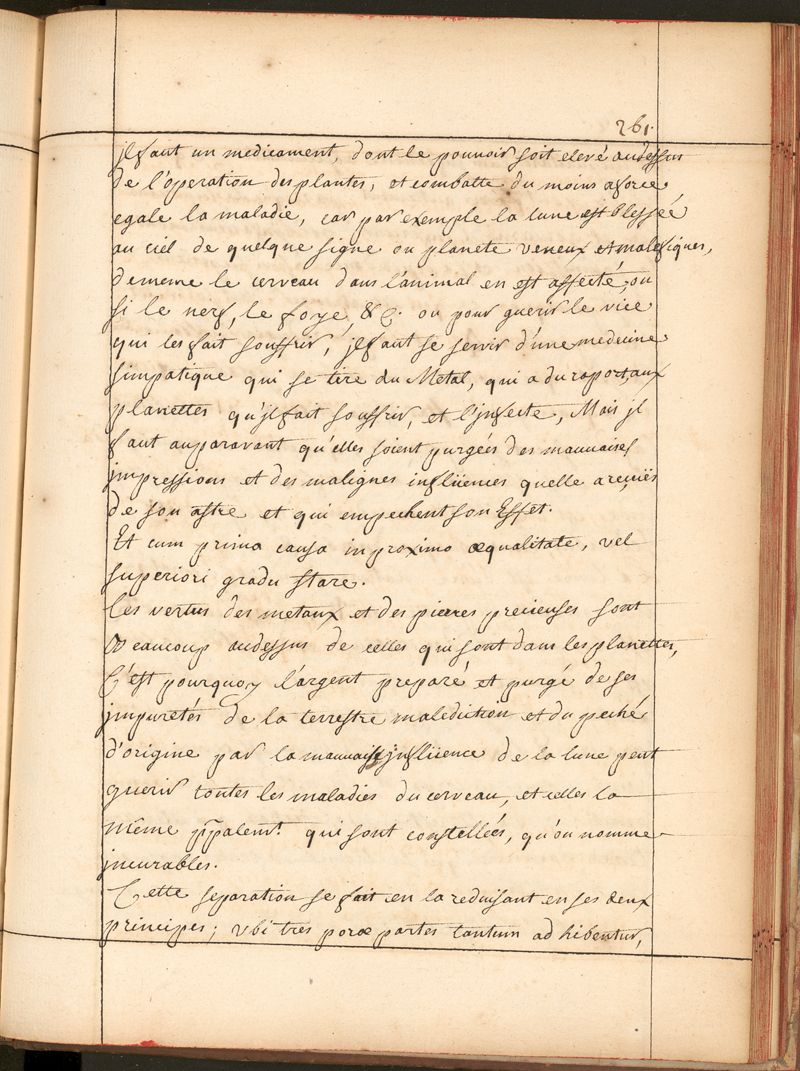 261.
jlfaut un medicament, dont le pouvoir soit elevé audessus
de l'operation des plantes, et combatte du moins aforce
egale la maladie, car par exemple la lune est blessée
au ciel de quelque signe ou planete veneux et malefiques,
dememe le cerveau dans l'animal en est affecté, ou
si le nerf, le foye, &c. ou pour guerir le vice
qui les fait souffrir, jlfaut se servir d'une medecine
simpatique qui se tire du Metal, qui a du raport, aux
planettes qu'jlfait souffrir, et l'jnfecte, Mais jl
faut auparavant qu'elles soient purgées des mauvaises
jmpressions et des malignes influences quelle a reçuës
de son astre et qui empechent son Effet.
Et cum prima causa in proximo æqualitate, vel
superiori gradu stare.
Les vertus des metaux et des pierres precieuses sont
Beaucoup audessus de celles qui sont dans les planettes,
C'est pourquoy l'argent preparé et purgé de ses
jmpuretés de la terrestre malediction et du peché
d'origine par la mauvaise jnflüence de la lune peut
guerir toutes les maladies du cerveau, et celles la
même ppalemt. qui sont constellées, qu'on nomme
jncurables.
Cette separation se fait en la reduisant en ses deux
principes; vbi tres poræ partes tantum adhibentur,